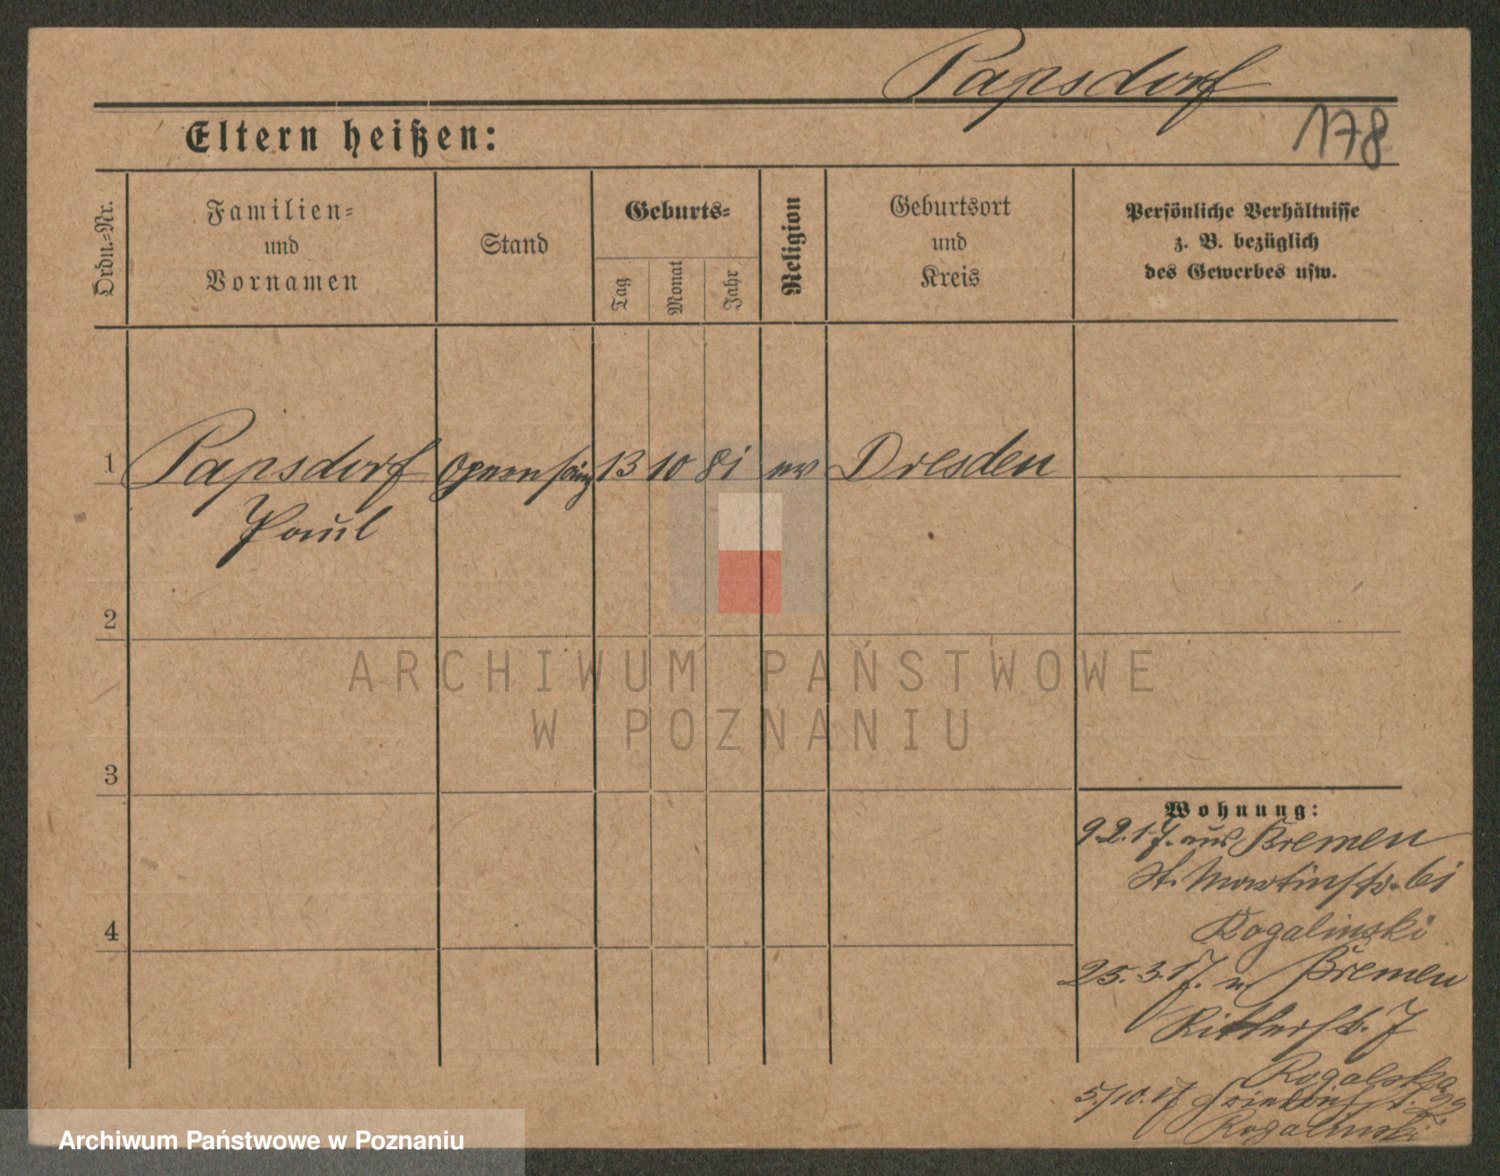 Papsdorf
178
Eltern heißen:
Ordn.-Nr.
Familien-
und
Vornamen
Stand
Geburts-
Tag
Monat
Jahr
Religion
Geburtsort
und
Kreis
Persönliche Verhältnisse
z. B. bezüglich
des Gewerbes usw.
1 Papsdorf Opernsäng 13 10 81 ev Dresden
Paul
2
3
4
Wohnung:
9.2.17. aus Bremen
St. Martinstr. 61
Rogalinski
25.3.17. n Bremen
Ritterstr. 7
Rogalska
5/10.17
Rogalinski
ARCHIWUM PAŃSTWOWE
W POZNANIU
Archiwum Państwowe w Poznaniu